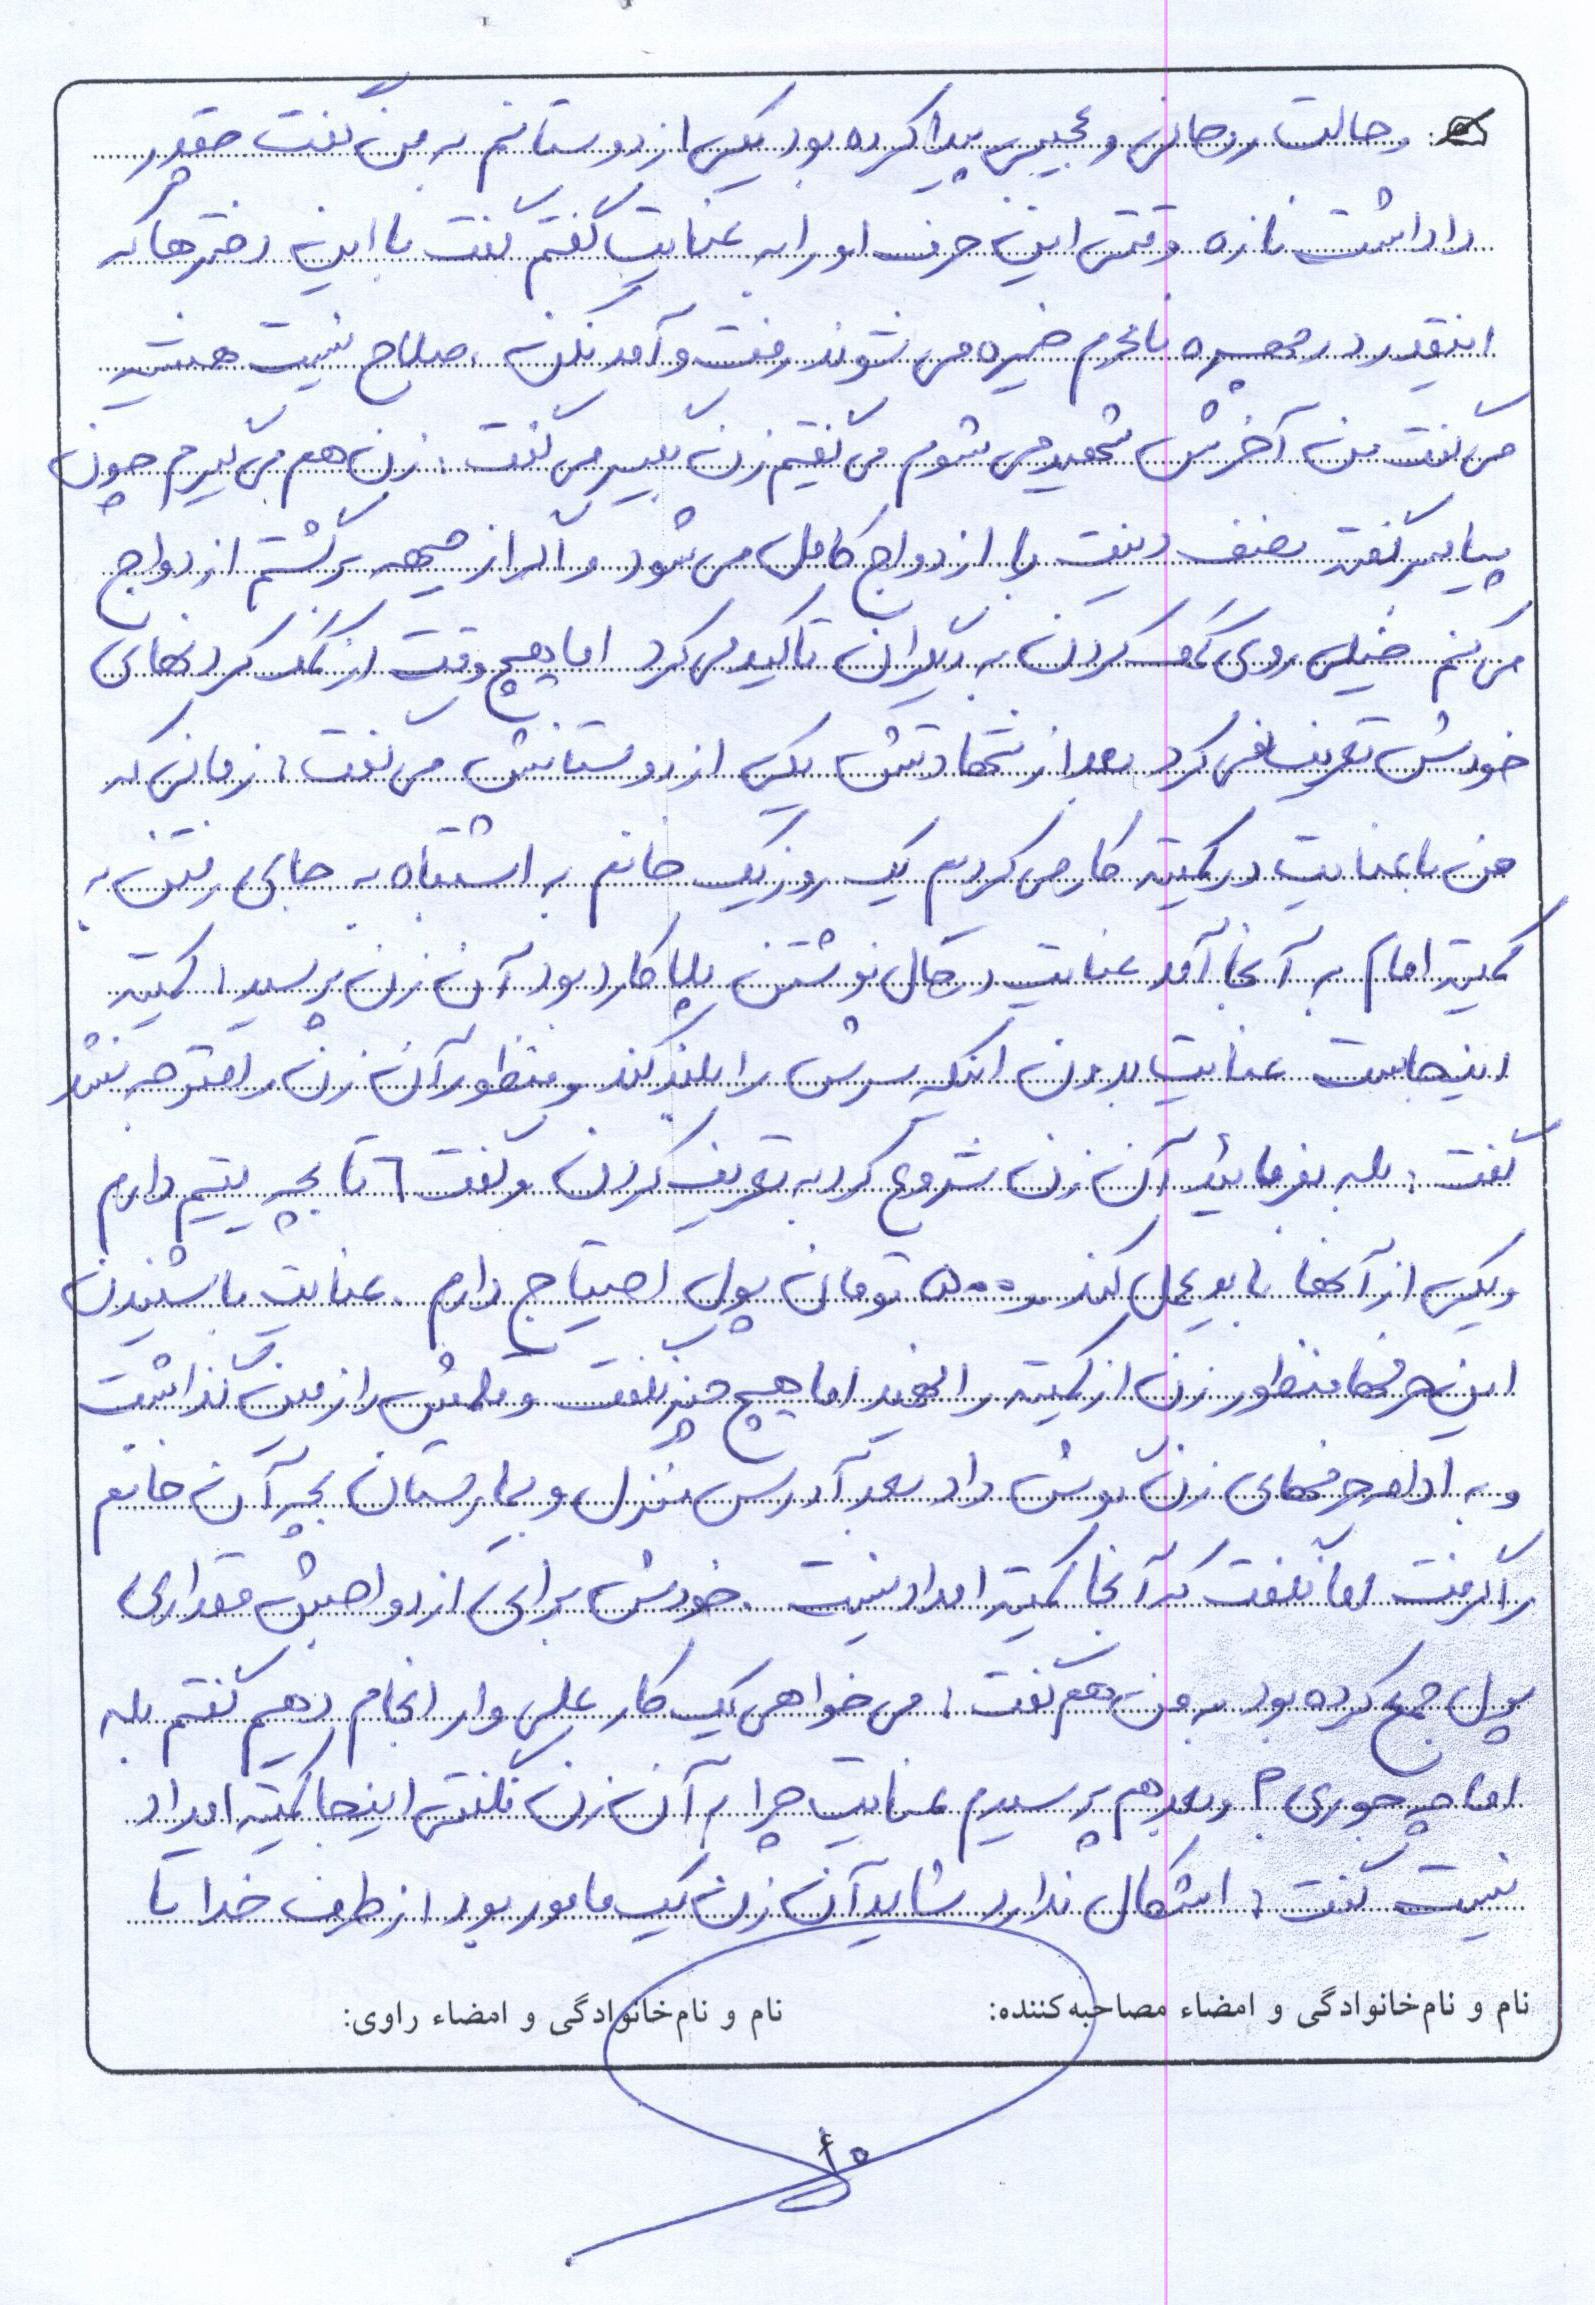 و حالت روحانی و عجیبی پیدا کرده بود یکی از دوستانم به من گفت چقدر
داداشت نازه وقتی این حرف او را به عنایت گفتم گفت با این دخترها که
اینقدر در چهره نامحرم خیره می شوند رفت و آمد نکن ، صلاح نیست همیشه
می گفت من آخرش شهید می شوم می گفتیم زن بگیر می گفت : زن هم می گیرم چون
پیامبر گفته نصف دینت با ازدواج کامل می شود و اگر از جبهه برگشتم ازدواج
می کنم خیلی روی کمک کردن به دیگران تاکید می کرد اما هیچ وقت از کمک کردنهای
خودش تعریف نمی کرد بعد از شهادتش یکی از دوستانش می گفت : زمانی که
من با عنایت در کمیته کار می کردم یک روز یک خانم به اشتباه به جای رفتن به
کمیته امام به آنجا آمد عنایت در حال نوشتن پلاکارد بود آن زن پرسید : کمیته
اینجاست عنایت بدون اینکه سرش را بلند کند و منظور آن زن را متوجه نشد
گفت : بله بفرمائید آن زن شروع کرد به تعریف کردن و گفت ٦ تا بچه یتیم دارم
و یکی از آنها باید عمل کند و ۵۰۰۰ تومان پول احتیاج دارم . عنایت با شنیدن
این حرفها منظور زن از کمیته را فهمید اما هیچ چیز نگفت و قلمش را زمین گذاشت
و به ادامه حرفهای زن گوش داد بعد آدرس منزل و بیمارستان بچه آن خانم
را گرفت اما نگفت که آنجا کمیته امداد نیست . خودش برای ازدواجش مقداری
پول جمع کرده بود به من هم گفت : می خواهی یک کار علی وار انجام دهیم گفتم بله
اما چه جوری ؟ و بعد هم پرسیدم عنایت چرا به آن زن نگفتی اینجا کمیته امداد
نیست گفت : اشکال ندارد شاید آن زن یک مامور بود از طرف خدا تا
نام و نام‌خانوادگی و امضاء مصاحبه‌کننده: نام و نام‌خانوادگی و امضاء راوی: